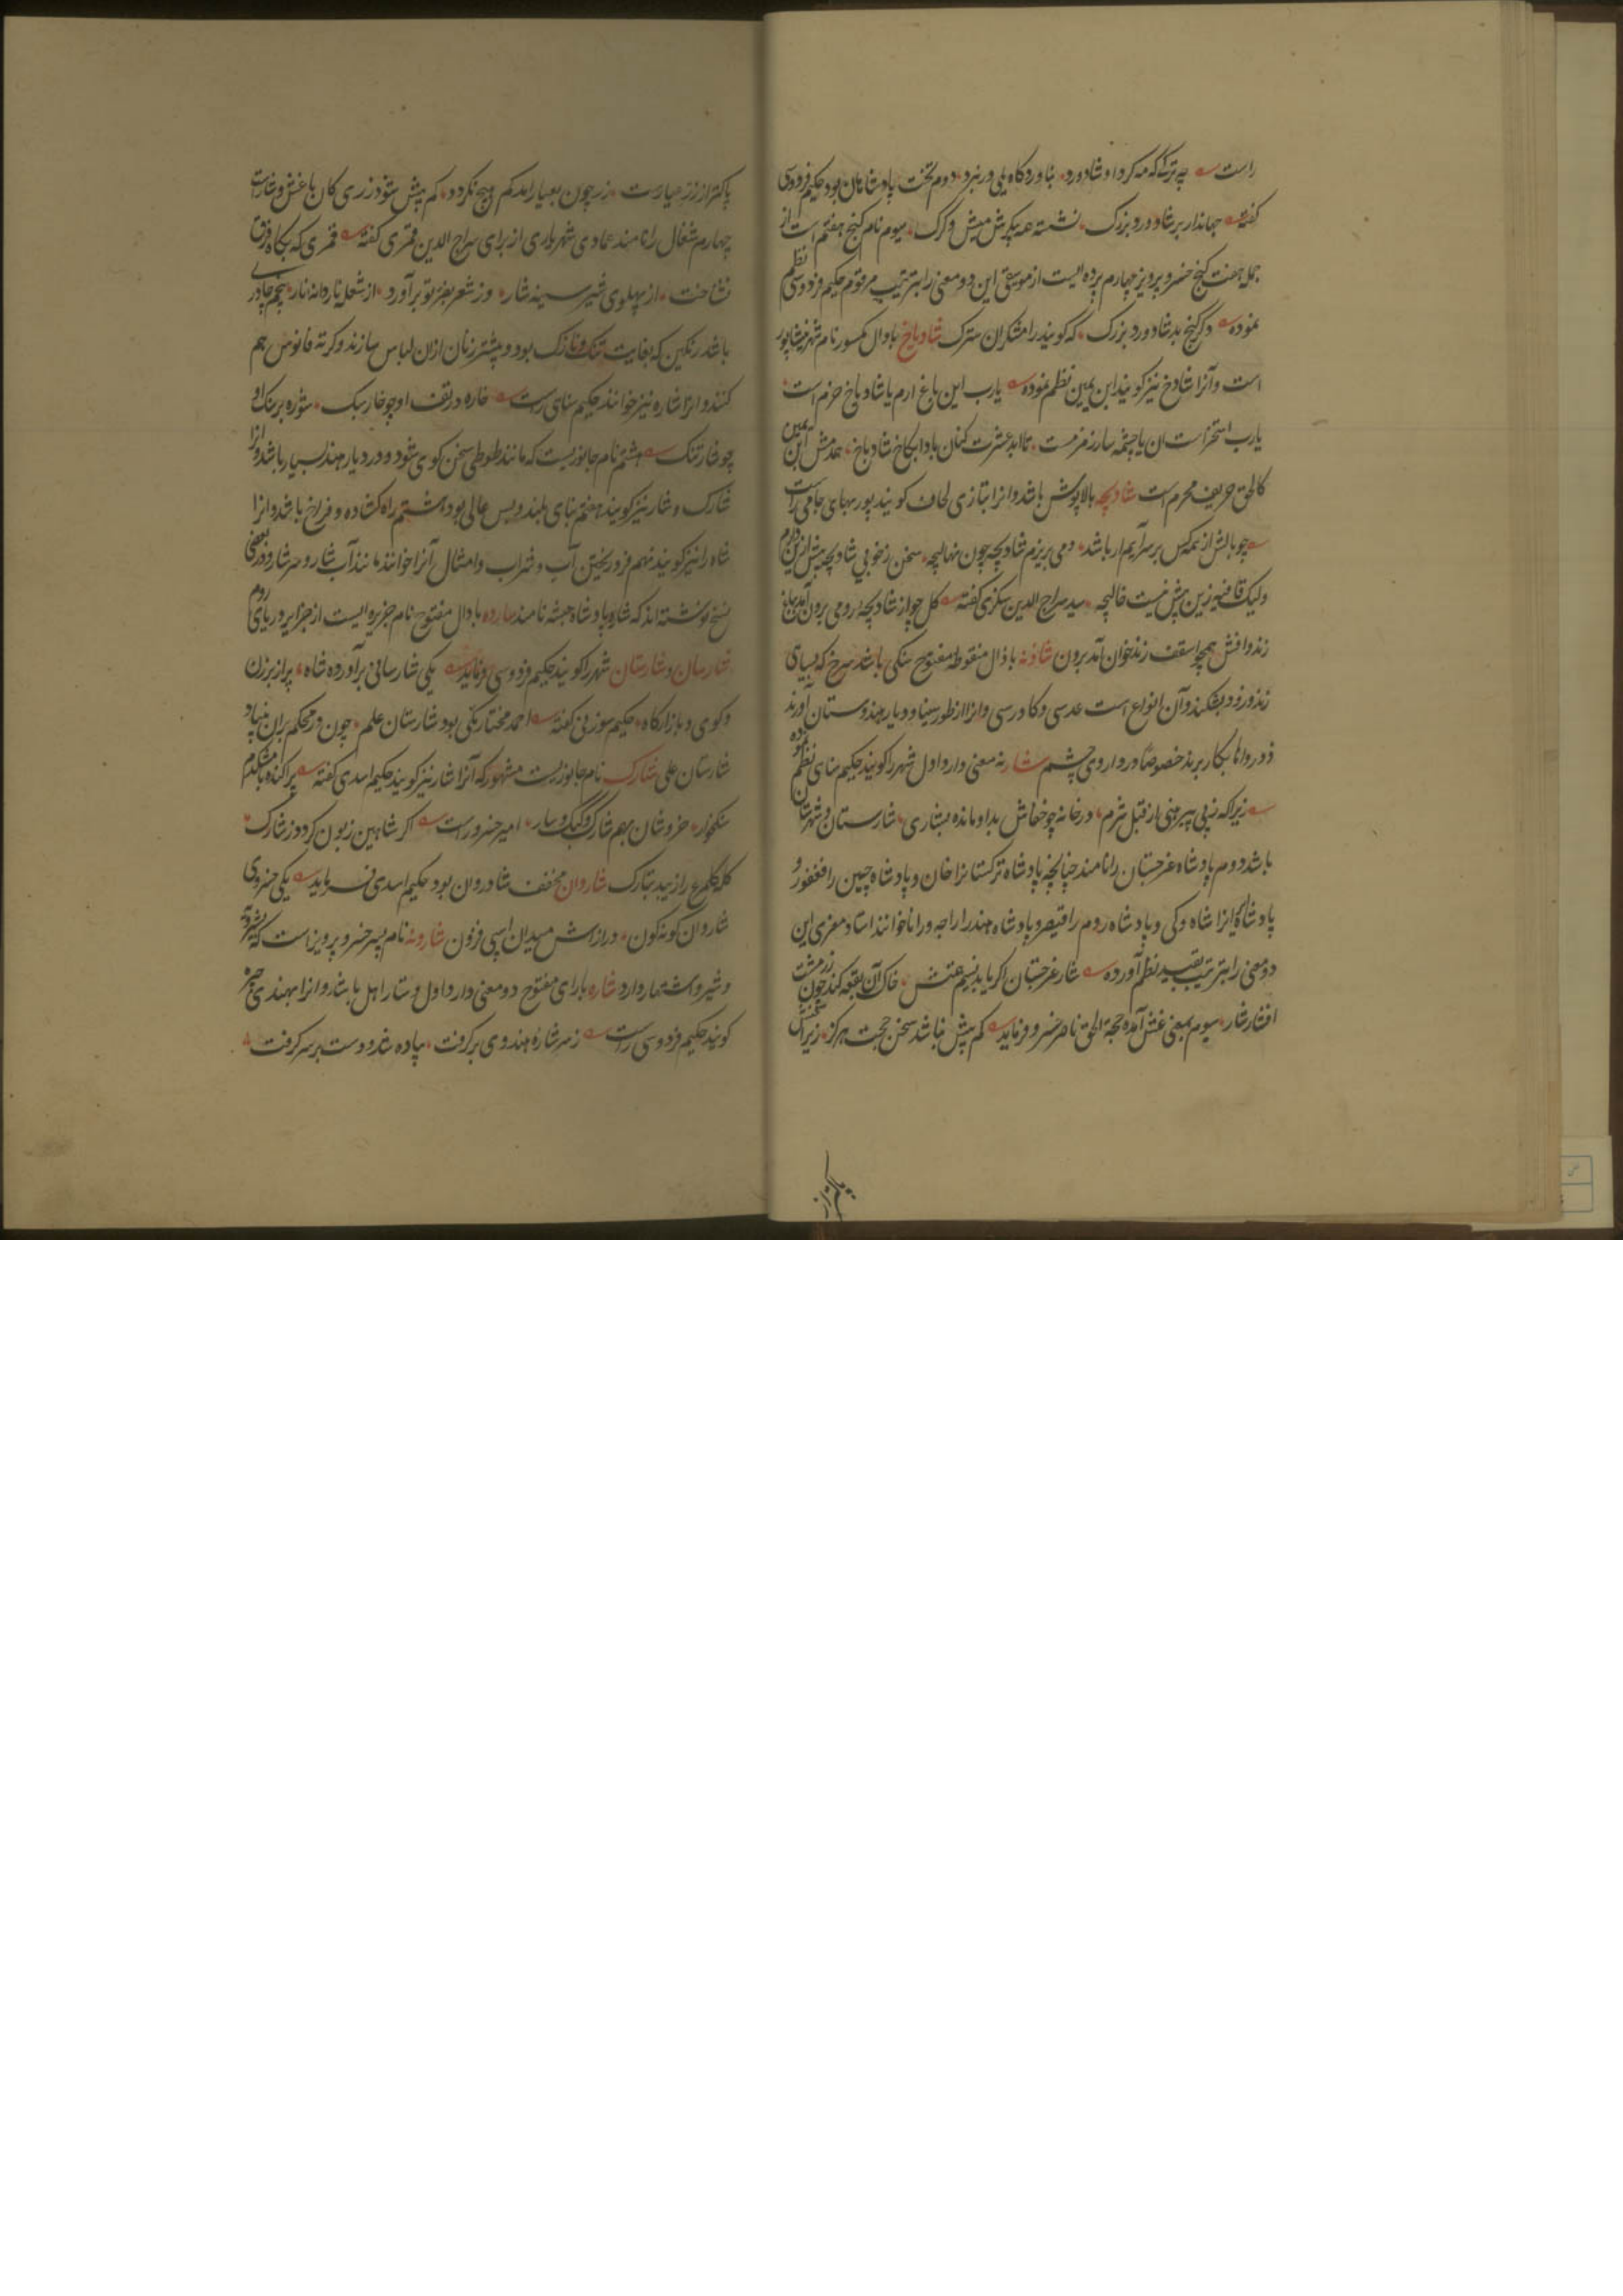 راست به ترکے که مه کرد او شادورد بناوردکاه یلی در نبرد دوم تخت پادشاهان بود حکیم فردوسی
کفته جهاندار بر شادورد بزرک نشسته همه پیکرش میش و کرک سیوم نام کنج هفتم است از
جمله هفت کنج خسرو پرویز چهارم پرده ایست از موسیقی این دو معنی را بترتیب مرقوم حکیم فردوسی نظم
نموده دکر کنج بد شادورد بزرک که کویند رامشکران سترک شادیاخ بادال مکسور نام شهر نیشاپور
است و آنرا شادخ نیز کویند ابن یمین نظم نموده یارب این باغ ارم یا شادیاخ خرم است
یارب است آن یا چشمه سار زمزمست تا ابد عشرت کنان بادا بکاخ شادیاخ همدمش ابن یمین
کالحق حریف محرم است شادیچه بالاپوش باشد و انرا بتازی لحاف کویند پور بهای جامی راست
چو بالش از همه کس بر سر آیم ار باشد دمی بزیرم شادیچه چون نهالیچه سخن ز خوبی شادیچه بیش ازین دارم
ولیک قافیه زین بیش نیست خالیچه سید سراج الدین سکزی کفته کل چو از شادیچه رومی برون آمد بباغ
زندوافش همچو اسقف زندخوان آمد برون شاذنه با ذال منقوطه مفتوح سنکی باشد سرخ که بسیاهی
زند و زود بشکند و آن انواع است عدسی و کاورسی و انرا از طور سینا و دیار هندوستان آورند
و در دواها بکار برند خصوصا در داروی چشم شار نه معنی دارد اول شهر را کویند حکیم سنای نظم نموده
زیراکه زبی پیرهنی از قبل شرم در خانه چو خفاش بداو مانده بشاری شارستان و شهرستان
باشد دوم پادشاه غرجستان را نامند چنانچه پادشاه ترکستانرا خان و پادشاه چین را فغفور و
پادشاه ایرانرا شاه و کی و پادشاه روم را قیصر و پادشاه هند را راجه و رانا خوانند استاد معزی این
دو معنی را بترتیب بقید نظم آورده شار غرجستان اکر یابد نسیم همتش خاک آن بقعه کند چون زر مشت
افشار شار سیوم بمعنی غش آمده حجة الحق ناصر خسرو فرماید کم بیش نباشد سخن حجت هرکز زیرا سخنش
پاکتر از
پاکتر از زر عیارست زر چون بعیار آمد کم بیش نکردد کم بیش شود زری کان با غش و شارست
چهارم شغال را نامند عمادی شهریاری از برای سراج الدین قمری کفته قمری که بکاه فرق
نشناخت از پهلوی شیر سینه شار وز شعر بغیر تو برآورد از شعله نار دانه نار پنجم چادری
باشد رنکین که بغایت تنک و نازک بود و بیشتر زنان ازان لباس سازند و کرته فانوس هم
کنند و انرا شاره نیز خوانند حکیم سنای راست خاره در تف او چو خار سبک شوره بر سنک او
چو شار تنک ششم نام جانوریست که مانند طوطی سخن کوی شود و در دیار هند بسیار باشد و انرا
شارک و شار نیز کویند هفتم بنای بلند و بس عالی بود هشتم راه کشاده و فراخ باشد و انرا
شاه راه نیز کویند نهم فرو ریختن آب و شراب و امثال آنرا خوانند مانند آبشار و سرشار و در بعضی
نسخ نوشته اند که شار پادشاه حبشه نامند شارده بادال مفتوح نام جزیره ایست از جزایر دریای روم
شارسان و شارستان شهر را کویند حکیم فردوسی فرماید یکی شارسانی برآورده شاه پر از برزن
و کوی و بازارکاه حکیم سوزنی کفته احمد مختار یکی بود شارستان علم چون در محکم بران بنیاد
شارستان علی شارک نام جانوریست مشهور که آنرا شار نیز کویند حکیم اسدی کفته پراکنده با مشکدم
سنکخوار خروشان بهم شارک و کبک و سار امیر خسرو راست اکر شاهین زبون کردد ز شارک
کله کلمرغ را زیبد بتارک شاروان مخفف شادروان بود حکیم اسدی فرماید یکی خسروی
شاروان کونه کون درازاش میدان اسپی فزون شارونه نام پسر خسرو پرویز است که بشیرویه
و شیرو اشتهار دارد شاره بارای مفتوح دو معنی دارد اول دستار اهل باشد و انرا بهندی چیره
کویند حکیم فردوسی راست ز سر شاره هندوی برکرفت پیاده شد و دست بر سر کرفت